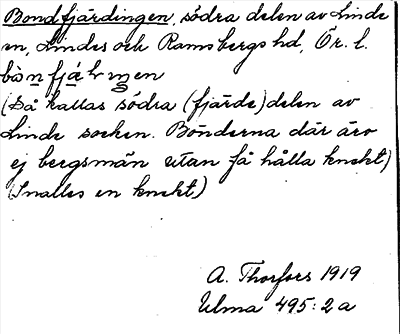 Bondfjärdingen, södra delen av Linde
sn, Lindes och Ramsbergs hd, Ör. l.
(Så kallas södra (fjärde) delen av
Linde socken. Bönderna där äro
ej bergsmän utan få hålla knekt)
(Snålles en knekt.)
A. Thorfors 1919
Ulma 495:2a